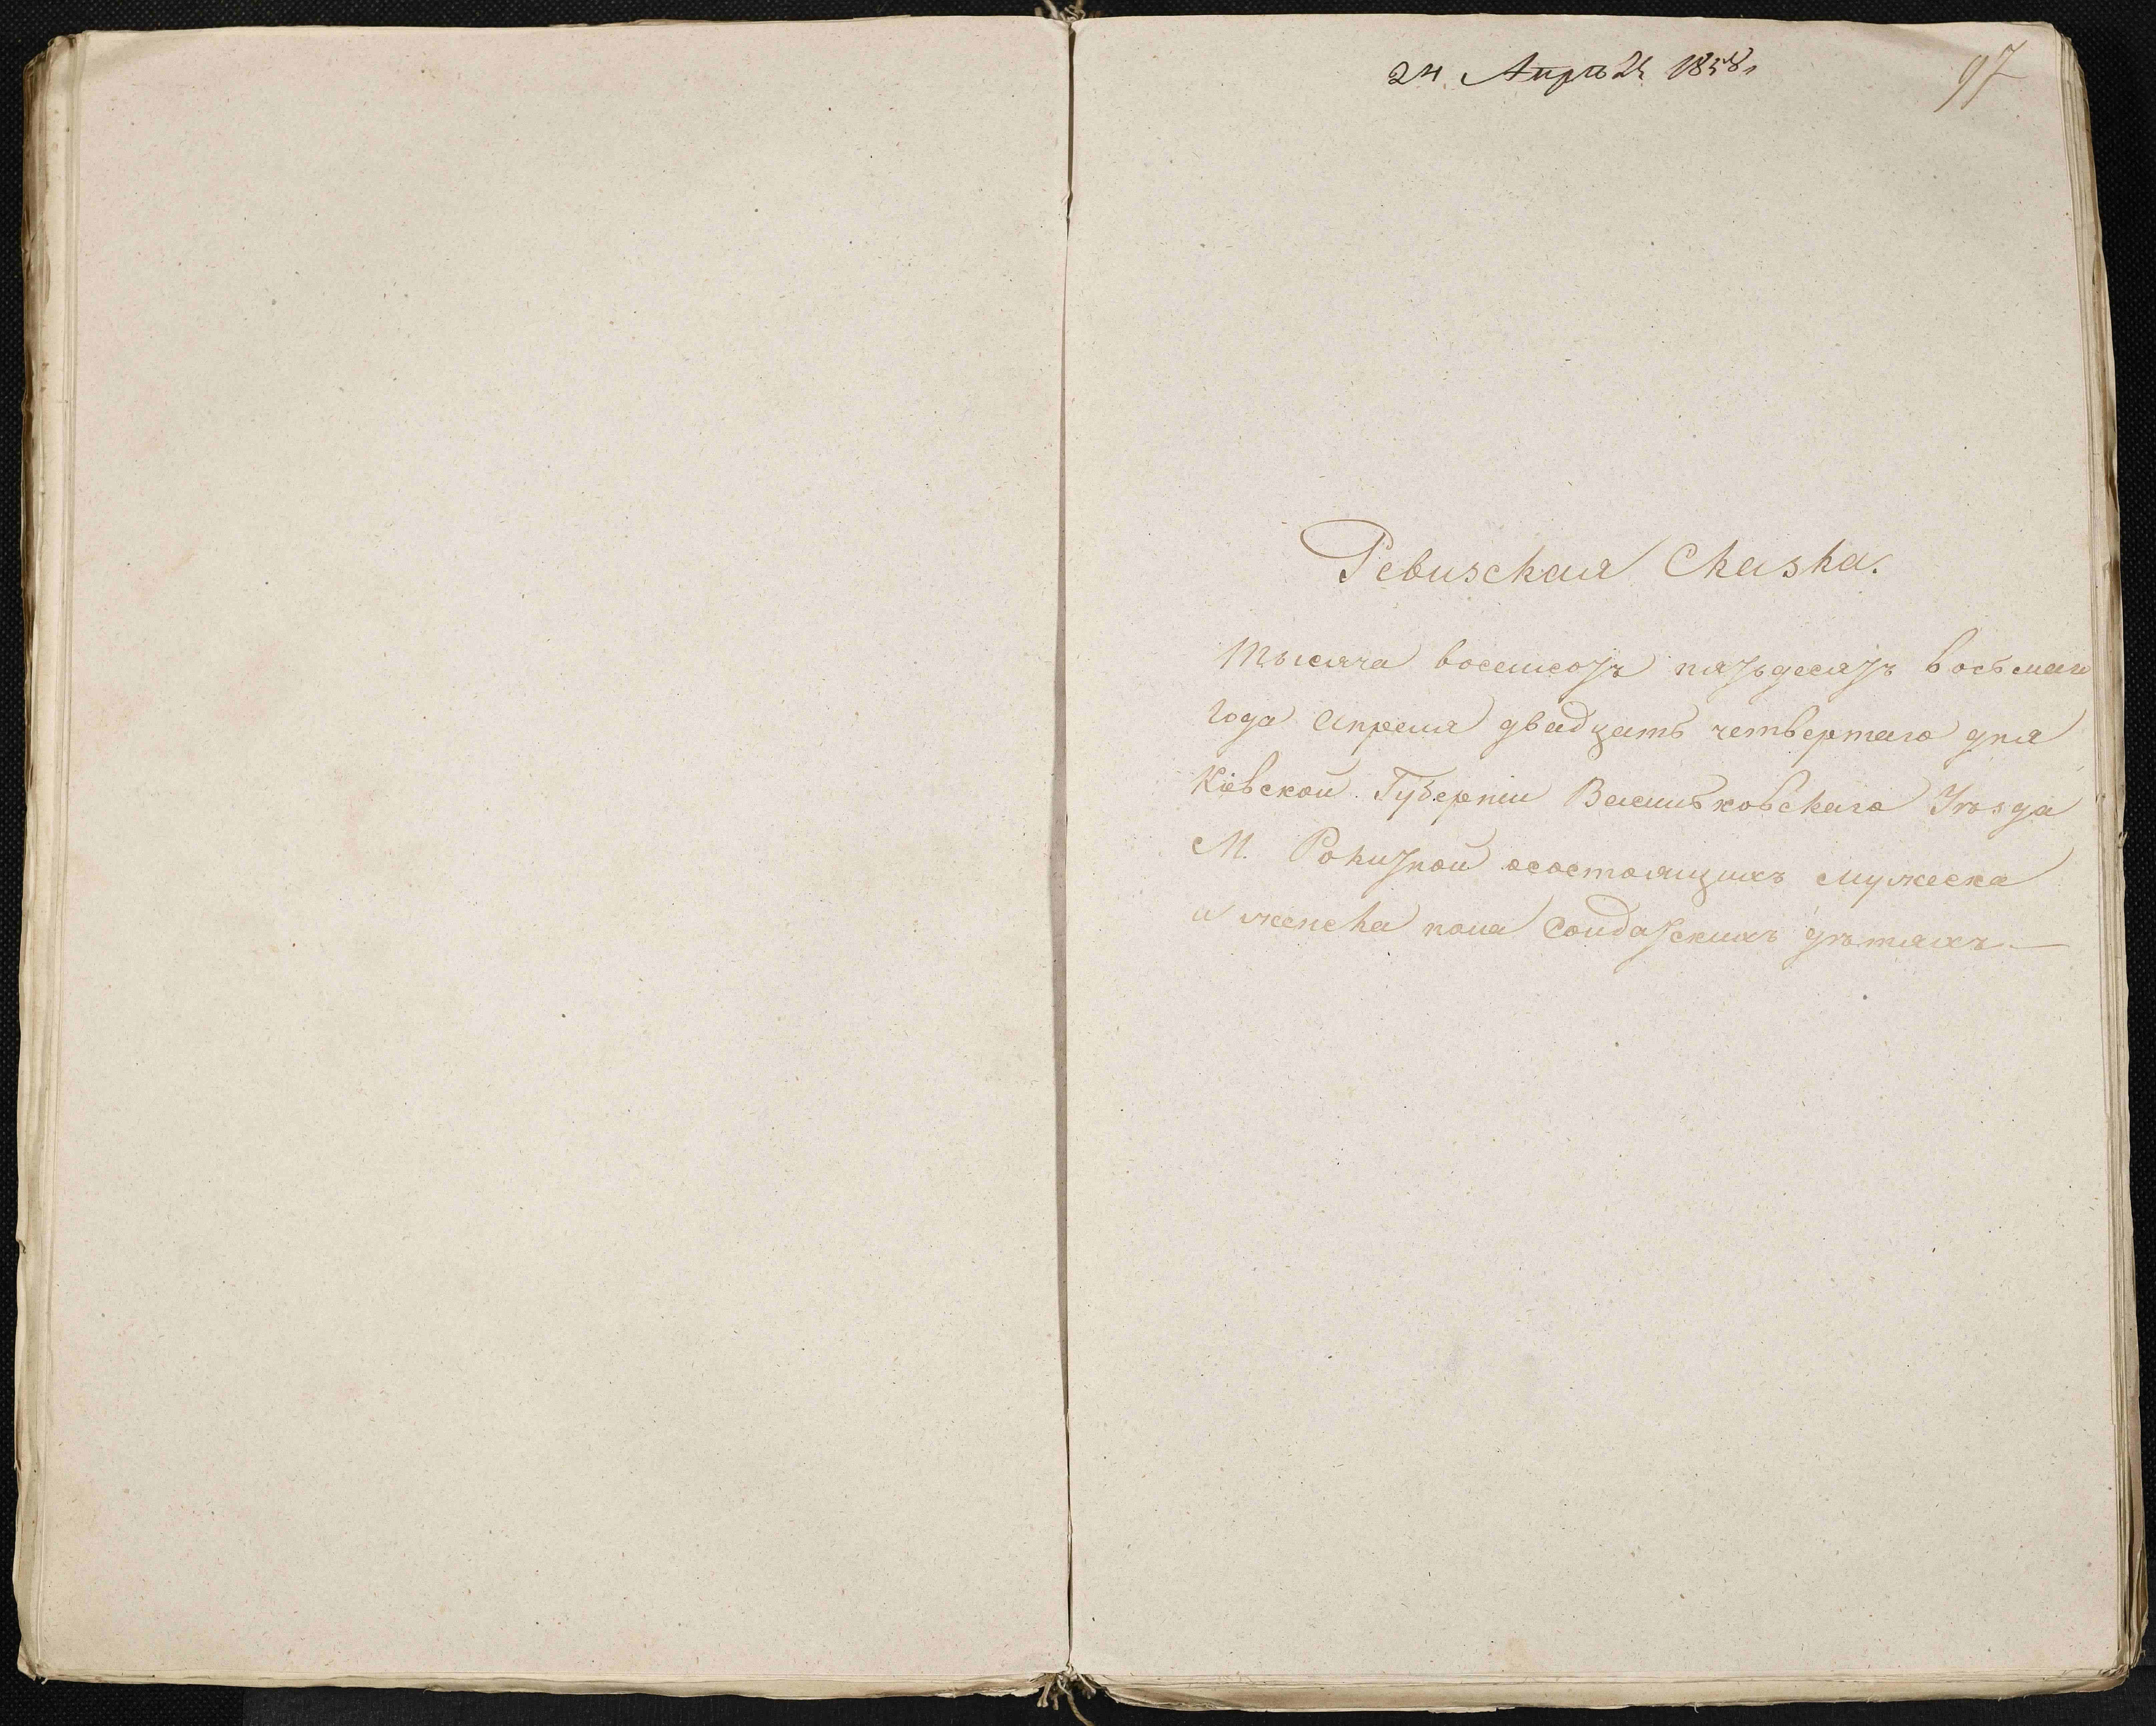 24 Апрѣля 1858 г
97
Ревизская Сказка.
Тысяча восемсотъ пятьдесятъ восьмаго
года Апреля двадцать четвертаго дня
Кіевской Губерніи Васильковскаго Уѣзда
М. Рокитной осостоящихъ мужеска
и женска пола Солдатскихъ дѣтяхъ.—